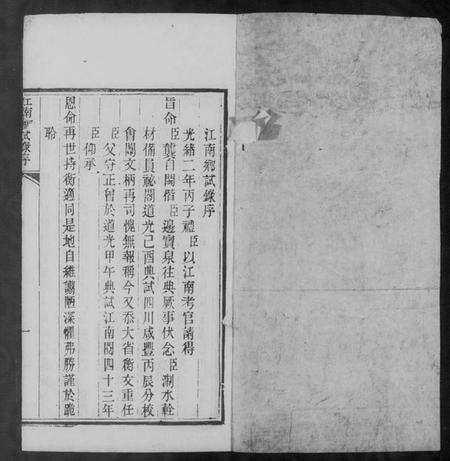 江南鄉試錄序
光緒二年丙子禮臣以江南考官請得
旨命臣龔自閎偕臣邊寶泉往典厥事伏念臣澗水輇
材備員祕閣道光己酉典試四川咸豐丙辰分校
會闈文柄再司愧無報稱今又忝大省衡文重任
臣父守正曾於道光甲午典試江南閱四十三年
臣仰承
恩命再世持衡適同是地自維譾陋深懼弗勝謹於跪
聆
江南鄉試錄序